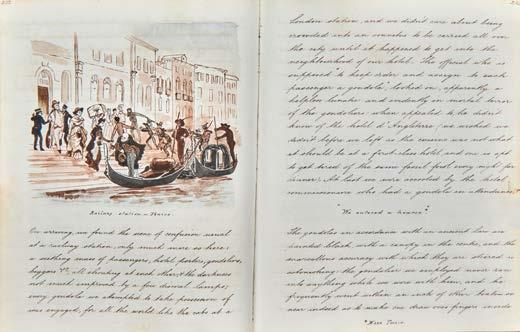 Railway station – Venice.
On arriving, we found the scene of confusion usual
at a railway station, only much more so here;
a seething mass of passengers, hotel porters, gondoliers,
beggars &c, all shouting at each other, & the darkness
not much improved by a few dismal lamps;
every gondola we attempted to take possession of
was engaged, for all the world like the cabs at a
London station, and we didn't care about being
crowded into an omnibus to be carried all over
the city until it happened to get into the
neighbourhood of our hotel. The official who is
supposed to keep order and assign to each
passenger a gondola, looked on, apparently a
helpless lunatic and evidently in mortal terror
of the gondoliers; when appealed to he didn't
know of the hotel d'Angleterre (we wished we
didn't before we left as the cuisine was not what
it should be at a first class hotel, and one is apt
to get tired of the same fowl first every night for
dinner). At last we were accosted by the hotel
commissionaire who had a gondola in attendance;
"We entered a hearse"*
The gondolas in accordance with an ancient law are
painted black, with a canopy in the centre, and the
marvellous accuracy with which they are steered is
astonishing; the gondolier we employed never ran
into anything while we were with him, and he
frequently went within an inch of other boats so
near indeed as to make one draw one's finger inwards
*Mark Twain.